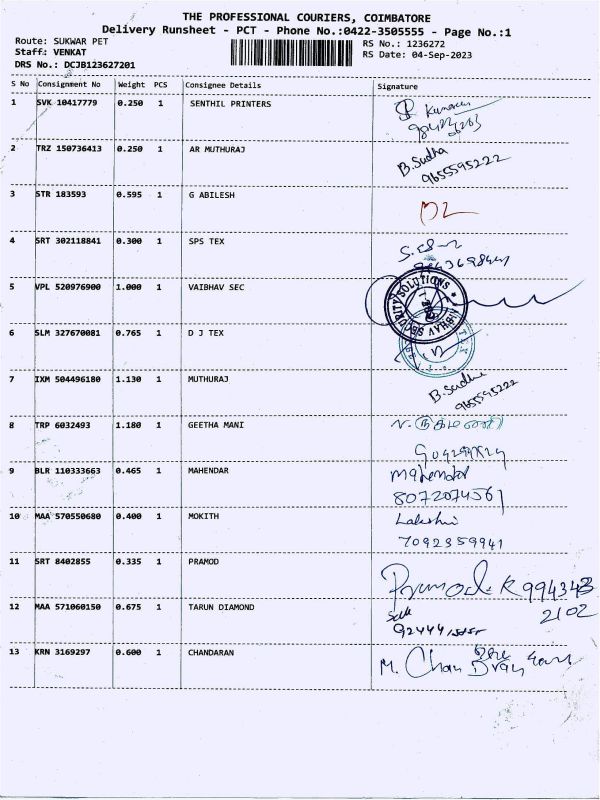 THE PROFESSIONAL COURIERS, COIMBATORE
Delivery Runsheet - PCT - Phone No.:0422-3505555 - Page No.:1
Route: SUKWAR PET
Staff: VENKAT
DRS No.: DCJB123627201
RS No.: 1236272
RS Date: 04-Sep-2023
S No Consignment No Weight PCS Consignee Details Signature
1 SVK 10417779 0.250 1 SENTHIL PRINTERS
2 TRZ 150736413 0.250 1 AR MUTHURAJ B.Sudha
9655595222
3 STR 183593 0.595 1 G ABILESH
4 SRT 302118841 0.300 1 SPS TEX
5 VPL 520976900 1.000 1 VAIBHAV SEC
VAIBHAV SECURITY SOLUTIONS
6 SLM 327670081 0.765 1 D J TEX
7 IXM 504496180 1.130 1 MUTHURAJ B.Sudha
9655595222
8 TRP 6032493 1.180 1 GEETHA MANI
9 BLR 110333663 0.465 1 MAHENDAR Mahendar
8072074561
10 MAA 570550680 0.400 1 MOKITH Lakshmi
7092359941
11 SRT 8402855 0.335 1 PRAMOD Pramod. K 994343
2102
12 MAA 571060150 0.675 1 TARUN DIAMOND
13 KRN 3169297 0.600 1 CHANDARAN M. Chan